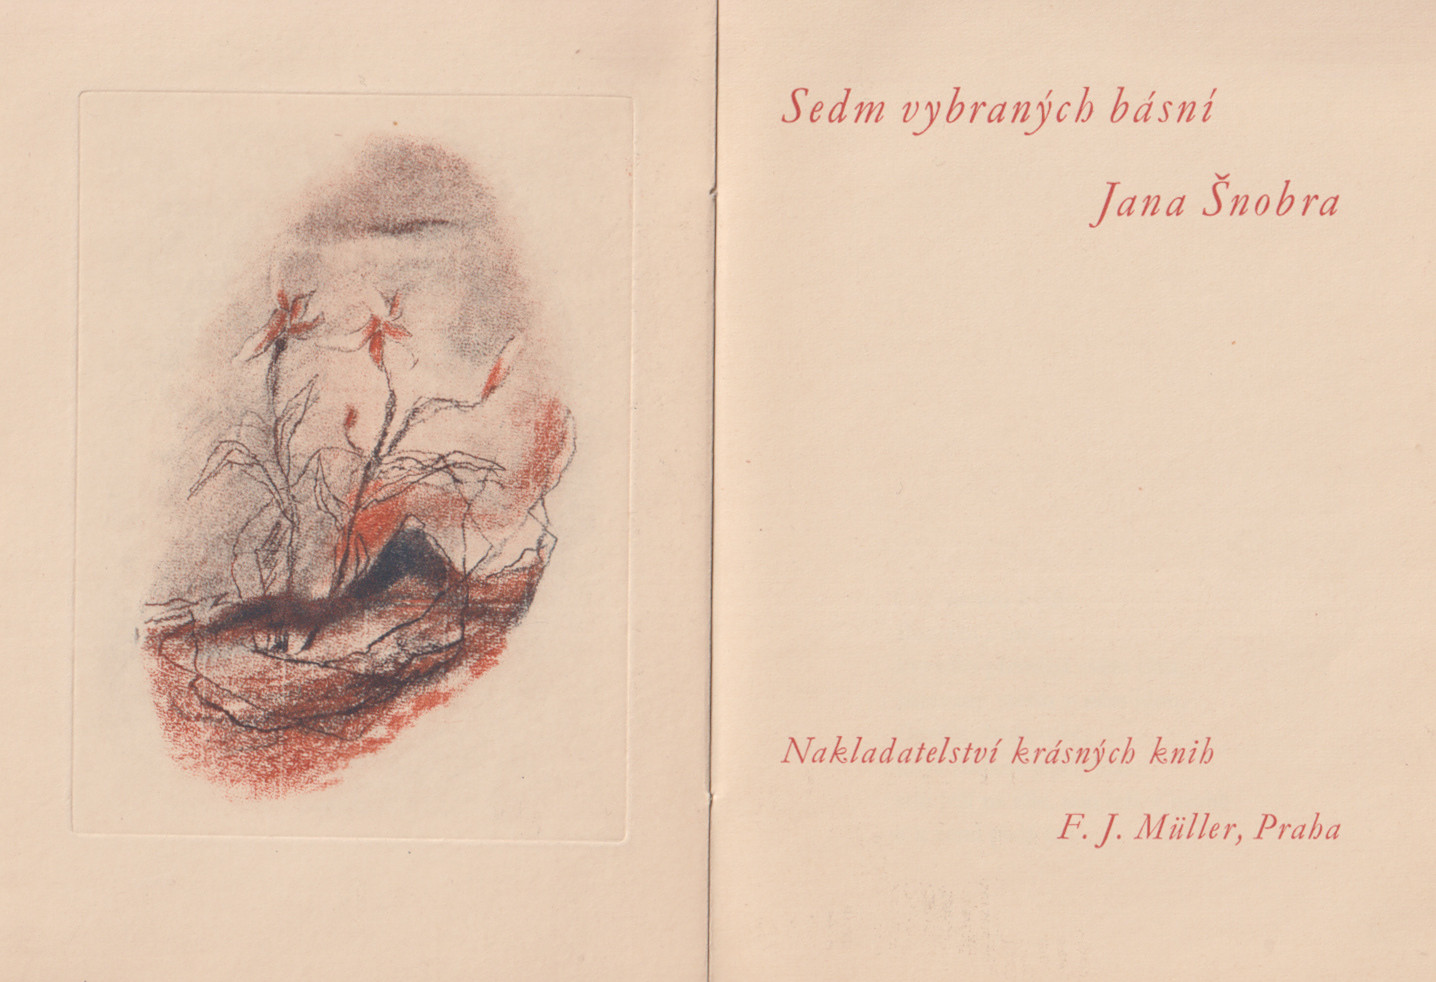 Sedm vybraných básní
Jana Šnobra
Nakladatelství krásných knih
F. J. Müller, Praha